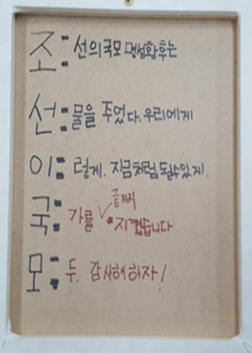 조: 선의 국모 명성황후는
선: 물을 주었다. 우리에게
이: 렇게. 지금처럼 될수있게.
국: 가를 끝까지 지켰습니다
모: 두. 감사해 하자!